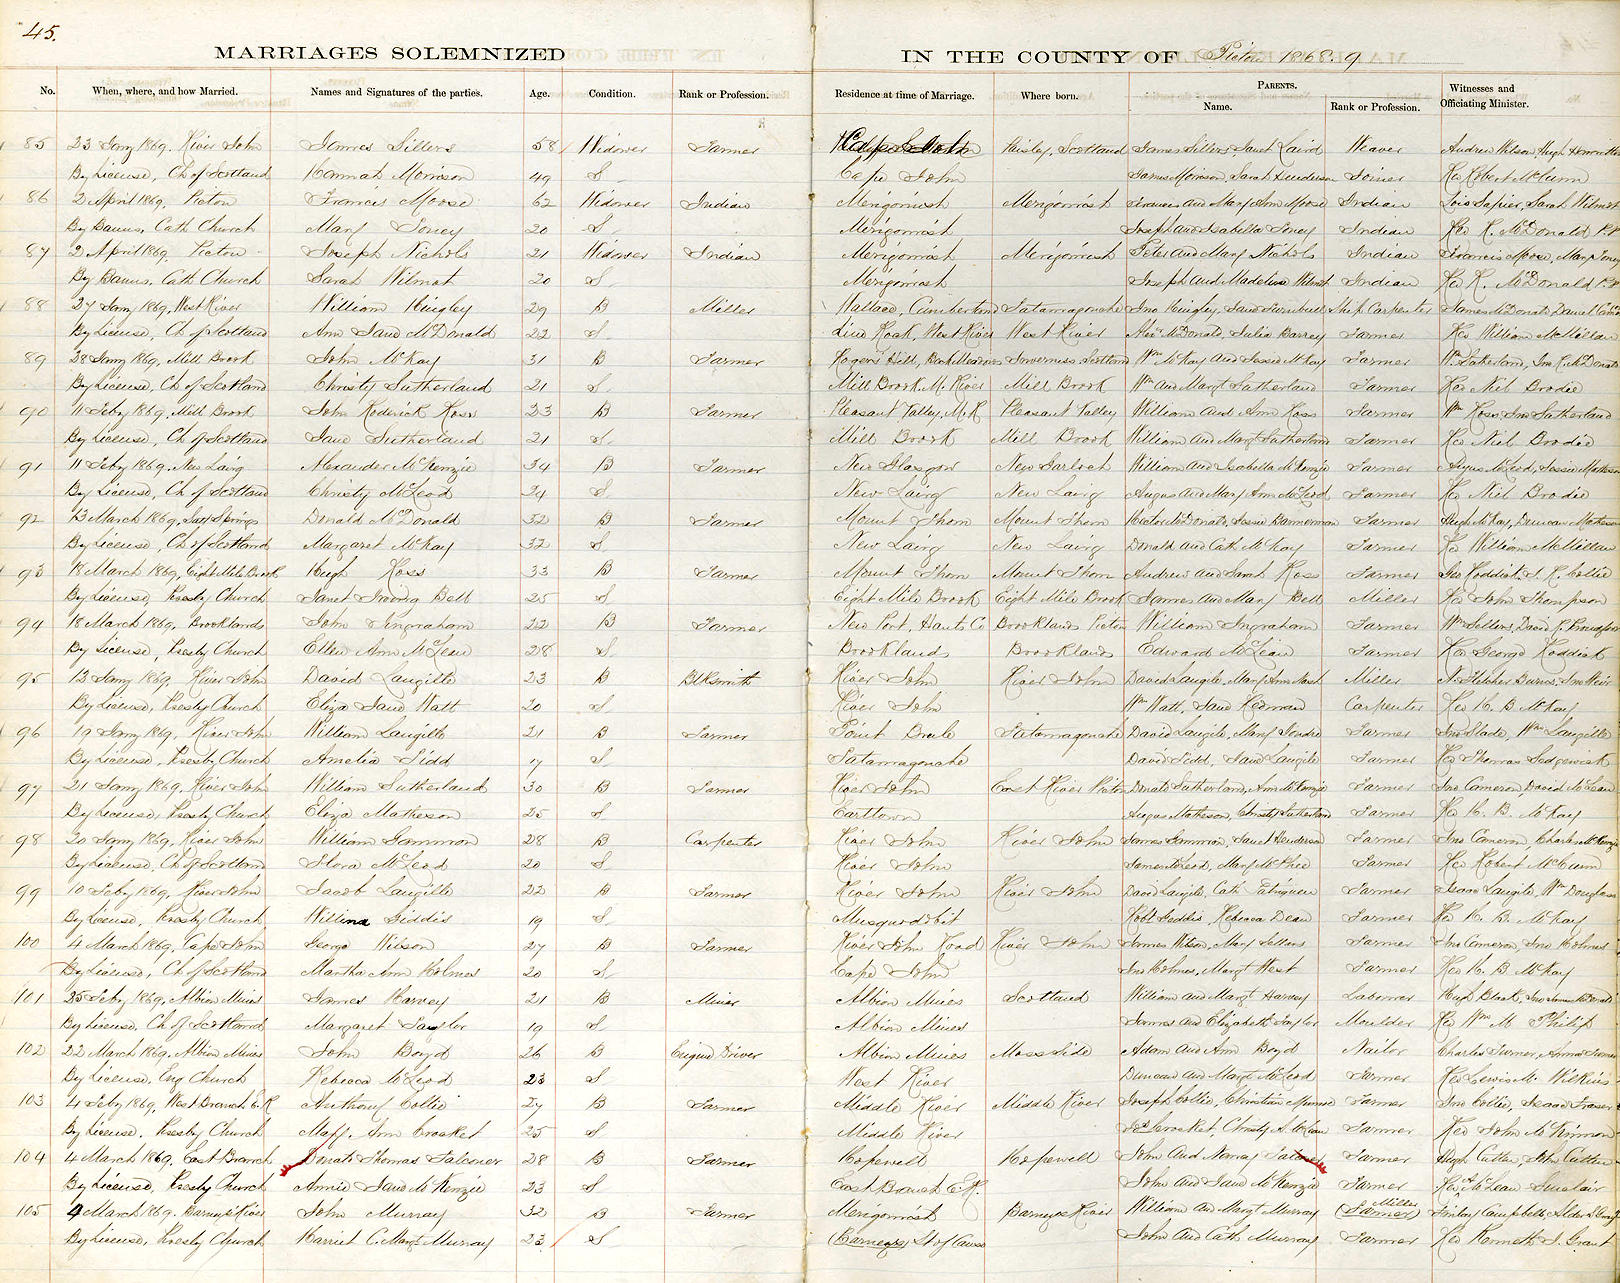 45.
MARRIAGES SOLEMNIZED IN THE COUNTY OF Pictou 1868-9
No. When, where, and how Married. Names and Signatures of the parties. Age. Condition. Rank or Profession. Residence at time of Marriage. Where born. PARENTS. Name. Rank or Profession. Witnesses and Officiating Minister.
85 23 Jany 1869, River John James Sillers 58 Widower Farmer Paisley, Scotland James Sillers, Janet Laird Weaver Andrew Wilson, Hugh
By License, Ch of Scotland Hannah Morrison 49 S Cape John James Morrison, Sarah Henderson Joiner Rev Robert McCunn
86 2 April 1869, Pictou Francis Moose 62 Widower Indian Merigomish Merigomish Francis and Mary Ann Moose Indian Lois Sapier, Sarah Wilmot
By Banns, Cath Church Mary Toney 20 S Merigomish Joseph and Isabella Toney Indian Rev R. McDonald P.P.
87 2 April 1869, Pictou Joseph Nichols 21 Widower Indian Merigomish Merigomish Peter and Mary Nichols Indian Francis Moose, Mary Toney
By Banns, Cath Church Sarah Wilmot 20 S Merigomish Joseph and Madeline Wilmot Indian Rev R. McDonald P.P.
88 27 Jany 1869, West River William Kingley 29 B Miller Wallace, Cumberland Tatamagouche Jno Kingley, Jane Turnbull Ship Carpenter James McDonald, Daniel
By License, Ch of Scotland Ann Jane McDonald 22 S Line Road, West River West River Alexr McDonald, Julia Barrey Farmer Rev William McMillan
89 28 Jany 1869, Mill Brook John McKay 31 B Farmer Rogers Hill, Inverness, Scotland Wm McKay and Jessie McKay Farmer Wm Sutherland, Jno R. McDonald
By License, Ch of Scotland Christy Sutherland 21 S Mill Brook, M. River Mill Brook Wm and Margt Sutherland Farmer Rev Neil Brodie
90 11 Feby 1869, Mill Brook John Roderick Ross 23 B Farmer Pleasant Valley, M.R Pleasant Valley William and Ann Ross Farmer Wm Ross, Jno Sutherland
By License, Ch of Scotland Jane Sutherland 21 S Mill Brook Mill Brook William and Margt Sutherland Farmer Rev Neil Brodie
91 11 Feby 1869, New Lairg Alexander McKenzie 34 B Farmer New Glasgow New Garloch William and Isabella McKenzie Farmer Angus McLeod, Jessie Matheson
By License, Ch of Scotland Christy McLeod 24 S New Lairg New Lairg Angus and Mary Ann McLeod Farmer Rev Neil Brodie
92 13 March 1869, Salt Springs Donald McDonald 32 B Farmer Mount Thom Mount Thom Hector McDonald, Jessie Bannerman Farmer Hugh McKay, Duncan Matheson
By License, Ch of Scotland Margaret McKay 32 S New Lairg New Lairg Donald and Cath McKay Farmer Rev William McMillan
93 18 March 1869, Eight Mile Brook Hugh Ross 33 B Farmer Mount Thom Mount Thom Andrew and Sarah Ross Farmer Jno Roddick, J. R. Collie
By License, Presby Church Janet Irving Bell 25 S Eight Mile Brook Eight Mile Brook James and Mary Bell Miller Rev John Thompson
94 18 March 1869, Brooklands John Ingraham 22 B Farmer New Port, Hants Co Brooklands Pictou William Ingraham Farmer Wm Sellers, David
By License, Presby Church Ellen Ann McLean 28 S Brooklands Brooklands Edward McLean Farmer Rev George Roddick
95 13 Jany 1869, River John David Langille 23 B Blksmith River John River John David Langille, Mary Ann Nash Miller N. Fletcher Burns, Jno Weir
By License, Presby Church Eliza Jane Watt 20 S River John Wm Watt, Jane Redman Carpenter Rev H. B. McKay
96 19 Jany 1869, River John William Langille 21 B Farmer Point Brule Tatamagouche David Langille, Mary Farmer Jno Slade, Wm Langille
By License, Presby Church Amelia Tidd 17 S Tatamagouche David Tidd, Jane Langille Farmer Rev Thomas Sedgewick
97 21 Jany 1869, River John William Sutherland 30 B Farmer River John East River Pictou Donald Sutherland, Ann McKenzie Farmer Jno Cameron, David McLean
By License, Presby Church Eliza Matheson 25 S Earltown Angus Matheson, Christy Sutherland Farmer Rev H. B. McKay
98 20 Jany 1869, River John William Gammon 28 B Carpenter River John River John James Gammon, Janet Henderson Farmer Jno Cameron, Charles McKenzie
By License, Ch of Scotland Flora McLeod 20 S River John James McLeod, Mary McPhee Farmer Rev Robert McCunn
99 10 Feby 1869, River John Jacob Langille 22 B Farmer River John River John David Langille, Cath Tatrigun Farmer Isaac Langille, Wm Douglass
By License, Presby Church Willina Geddis 19 S Musquodobit Robt Geddis, Rebecca Dean Farmer Rev H. B. McKay
100 4 March 1869, Cape John George Wilson 27 B Farmer River John Road River John James Wilson, Mary Sellers Farmer Jno Cameron, Jno Holmes
By License, Ch of Scotland Martha Ann Holmes 20 S Cape John Jno Holmes, Margt West Farmer Rev H. B. McKay
101 25 Feby 1869, Albion Mines James Harvey 21 B Miner Albion Mines Scotland William and Margt Harvey Laborer Hugh Black, Jno James McDonald
By License, Ch of Scotland Margaret Taylor 19 S Albion Mines James and Elizabeth Taylor Moulder Rev Wm M Philip
102 22 March 1869, Albion Mines John Boyd 26 B Engine Driver Albion Mines Moss side Adam and Ann Boyd Nailor Charles Turner, Anna Turner
By License, Eng Church Rebecca McLeod 23 S West River Duncan and Margt McLeod Farmer Rev Lewis M. Wilkins
103 4 Feby 1869, West Branch E.R Anthony Collie 27 B Farmer Middle River Middle River Joseph Collie, Christian Munro Farmer Jno Collie, Isaac Fraser
By License, Presby Church Mary Ann Crocket 25 S Middle River Jas Crocket, Christy A. McLean Farmer Rev John McKinnon
104 4 March 1869, East Branch Donald Thomas Falconer 28 B Farmer Hopewell Hopewell John and Nancy Falconer Farmer Hugh Cutten, John Cutten
By License, Presby Church Annie Jane McKenzie 23 S East Branch E.R. John and Jane McKenzie Farmer Rev A. McLean Sinclair
105 4 March 1869, Barneys River John Murray 32 B Farmer Merigomish Barneys River William and Margt Murray Miller (Farmer) Finlay Campbell, Alder
By License, Presby Church Harriet C. Margt Murray 23 S (Barneys) John and Cath Murray Farmer Rev Kenneth J. Grant